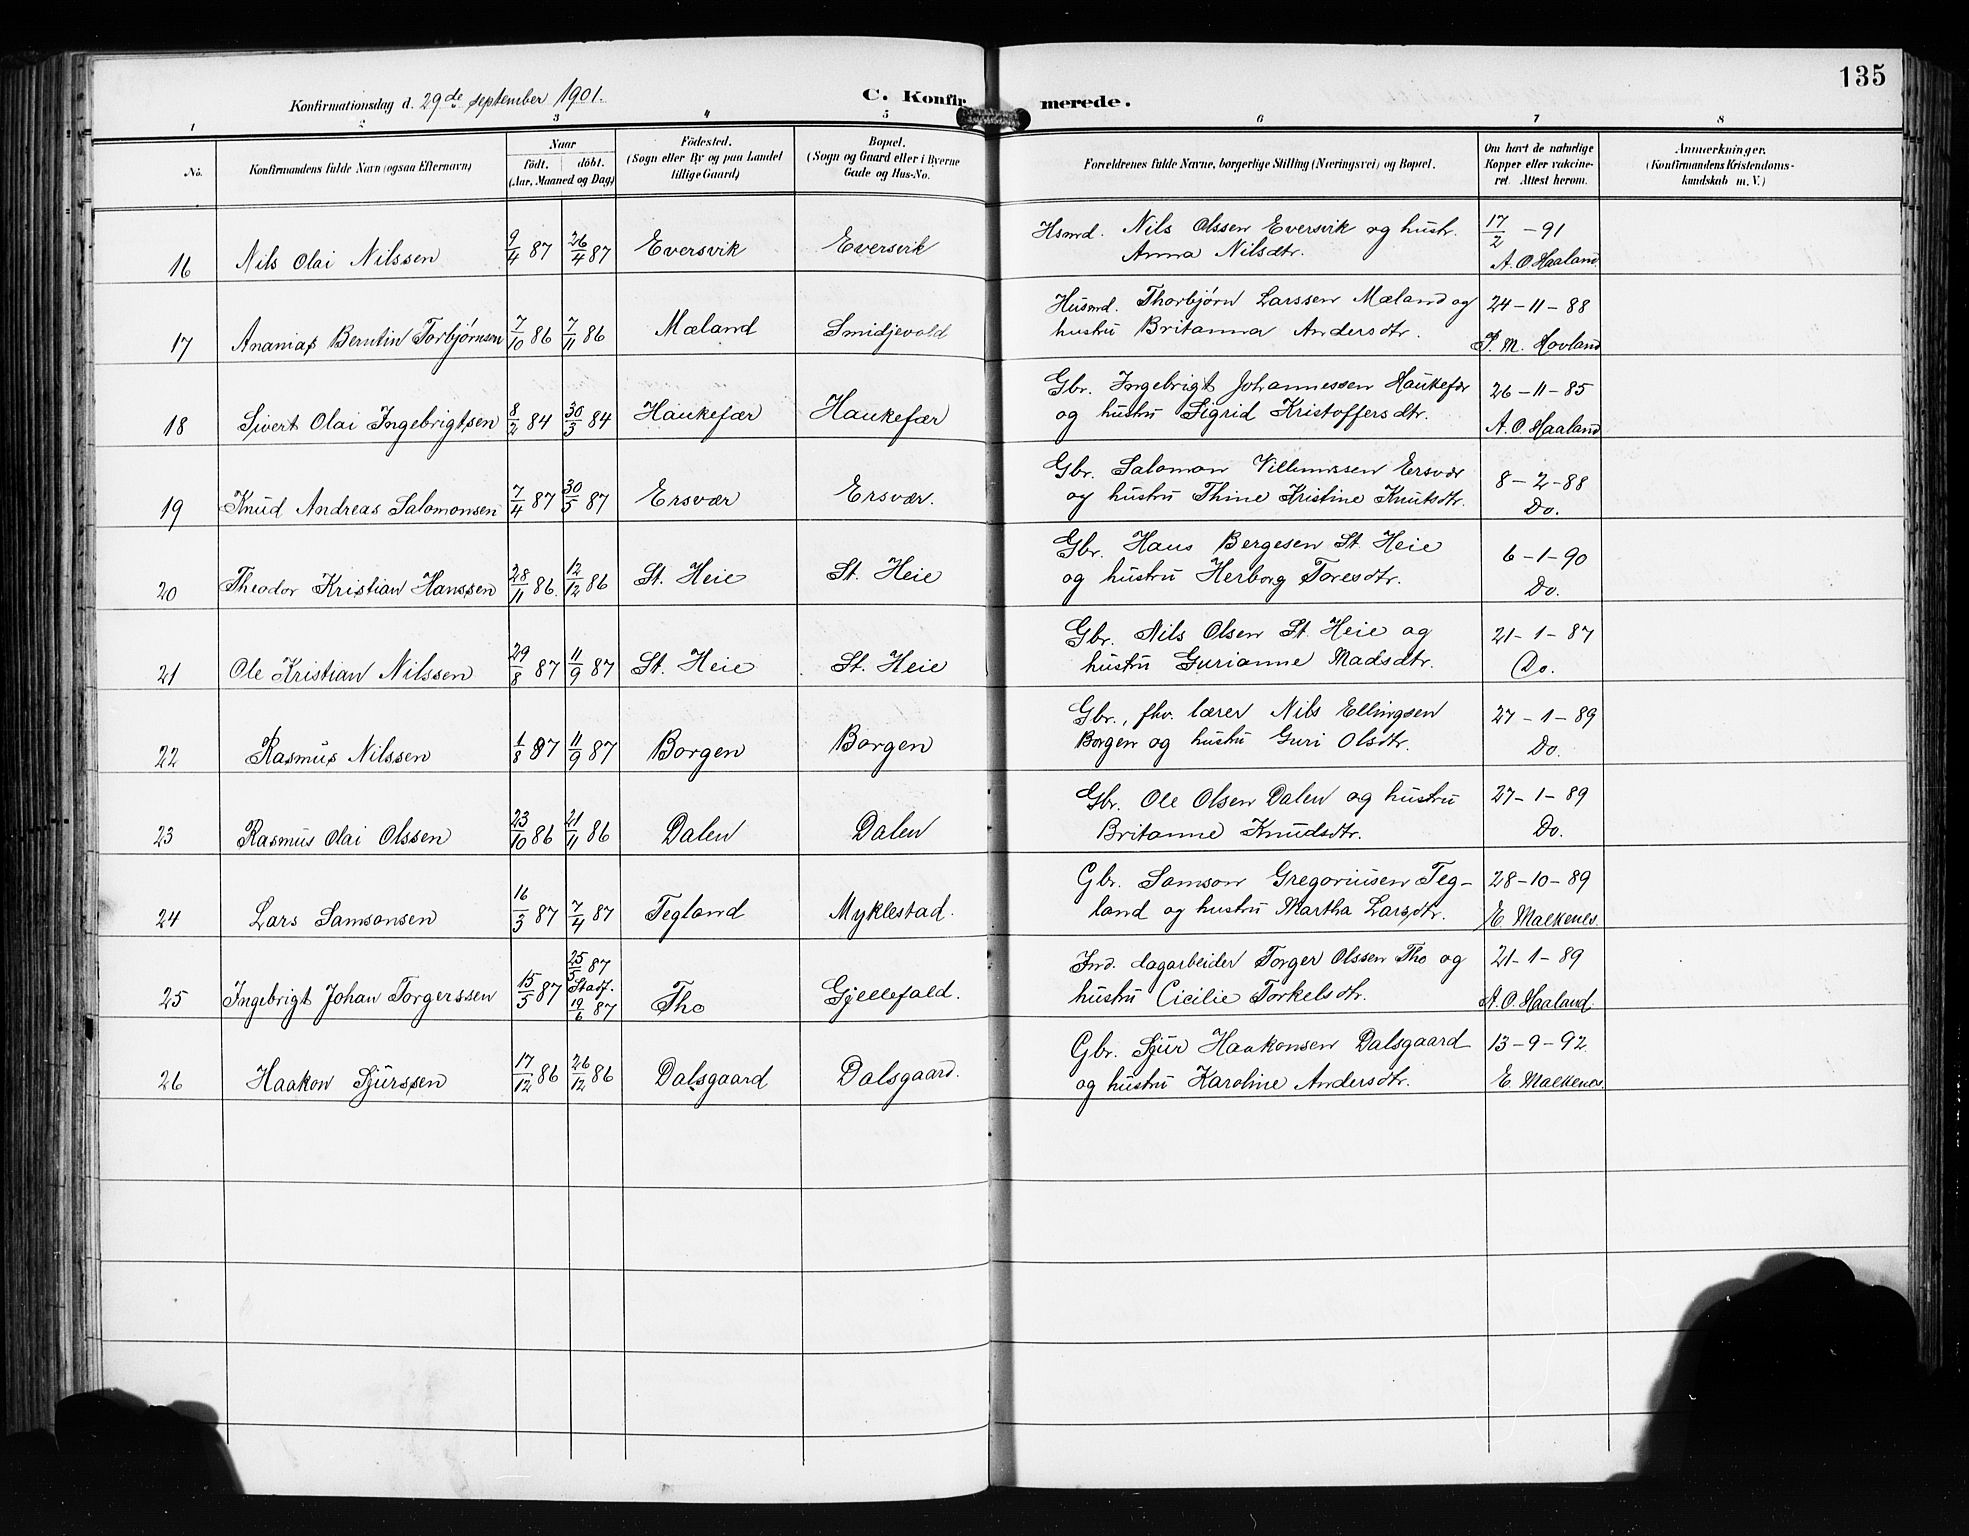 135
Konfirmationsdag d. 29de september 1901. C. Konfirmerede.
1 2 3 4 5 6 7 8
No. Konfirmandens fulde Navn (ogsaa Efternavn) Naar født. døbt. (Aar, Maaned og Dag) Födested. (Sogn eller By og paa Landet tillige Gaard) Bopæl. (Sogn og Gaard eller i Byerne Gade og Hus-No. Forældrenes fulde Navne, borgerlige Stilling (Næringsvei) og Bopæl. Om havt de naturlige Kopper eller vakcineret. Attest herom. Anmærkninger. (Konfirmandens Kristendomskundskab m. V.)
16 Nils Olai Nilssen 9/4 87 26/4 87 Eversvik Eversvik Hsmd. Nils Olssen Eversvik og hustr. Anna Nilsdtr. 17/2 - 91 A. O. Haaland
17 Ananias Berntin Torbjørnsen 7/10 86 7/11 86 Mæland Smidjevold Husmd. Thorbjørn Larssen Mæland og hustru Britanna Andersdtr. 24-11-88 P. M. Hovland
18 Sivert Olai Ingebrigtsen 8/2 84 30/3 84 Haukefær Haukefær Gbr. Ingebrigt Johannessen Haukefær og hustru Sigrid Kristoffersdtr. 26-11-85 A. O. Haaland
19 Knud Andreas Salomonsen 7/4 87 30/5 87 Ersvær Ersvær. Gbr. Salomon Villumssen Ersvær og hustru Thine Kristine Knutsdtr. 8-2-88 Do.
20 Theodor Kristian Hanssen 28/11 86. 12/12 86 St. Heie St. Heie Gbr. Hans Bergesen St. Heie og hustru Herborg Toresdtr. 6-1-90 Do.
21 Ole Kristian Nilssen 29/8 87 11/9 87 St. Heie St. Heie Gbr. Nils Olsen St. Heie og hustru Gurianne Madsdtr. 21-1-87 Do.
22 Rasmus Nilssen 1/8 87 11/9 87 Borgen Borgen Gbr., fhv. lærer Nils Ellingsen Borgen og hustru Guri Olsdtr. 27-1-89 Do.
23 Rasmus Olai Olssen 23/10 86 21/11 86 Dalen Dalen Gbr. Ole Olsen Dalen og hustru Britanne Knudsdtr. 27-1-89 Do.
24 Lars Samsonsen 16/3 87 7/4 87 Tegland Myklestad. Gbr. Samson Gregoriusen Tegland og hustru Martha Larsdtr. 28-10-89 E. Malkenes.
25 Ingebrigt Johan Torgerssen 15/5 87 25/5 87 Stadf. 19/6 87 Tho Gjellefald. Ind. dagarbeider Torger Olssen Tho og hustru Cicilie Torkelsdtr. 21-1-89 A. O. Haaland.
26 Haakon Sjurssen 17/12 86 26/12 86 Dalsgaard Dalsgaard. Gbr. Sjur Haakonsen Dalsgaard og hustru Karoline Andersdtr. 13-9-92. E. Malkenes.